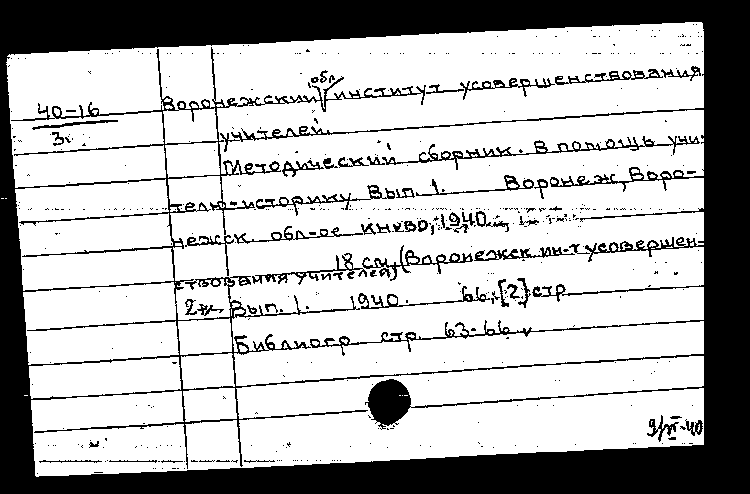 обл
40-16 Воронежский институт усовершенствования
3. учителей.
Методический сборник. В помощь учи-
телю-историку. Вып. 1. Воронеж, Воро-
нежск. обл-ое кн-во, 1940
18 см. (Воронежск. ин-т усовершен-
ствования учителей)
Вып. 1. 1940. 66, [2] стр.
Библиогр. стр. 63-66
9/VI-40